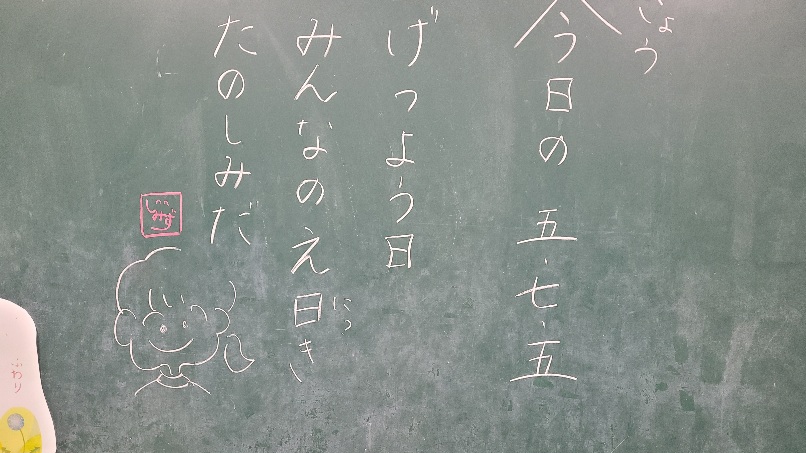 きょう
今日の 五・七・五
げつよう日
みんなのえ日き
にっ
たのしみだ
ふわり